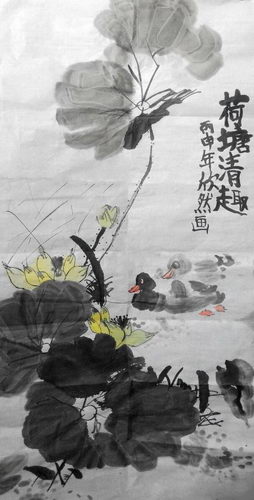 荷塘清趣
丙申年依然画